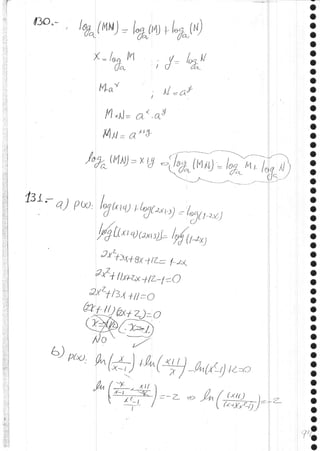 130.- log_a (MN) = log_a (M) + log_a (N)
x = log_a M ; y = log_a N
M = a^x ; N = a^y
M·N = a^x · a^y
MN = a^x+y
log_a (MN) = x+y ⇔ log_a (MN) = log_a M + log_a N
131.- a) p(x): log(x+4) + log(2x+3) = log(1-2x)
log [(x+4)(2x+3)] = log (1-2x)
2x²+3x+8x+12 = 1-2x
2x²+11x+2x+12-1=0
2x²+13x+11=0
(2x+11)(2x+2)=0
x=-1
NO
b) p(x): ln(x/x-1) + ln(x+1/x) - ln(x²-1)+2=0
= -2 ⇔ ln((x+1)/(x-1)(x²-1)) = -2